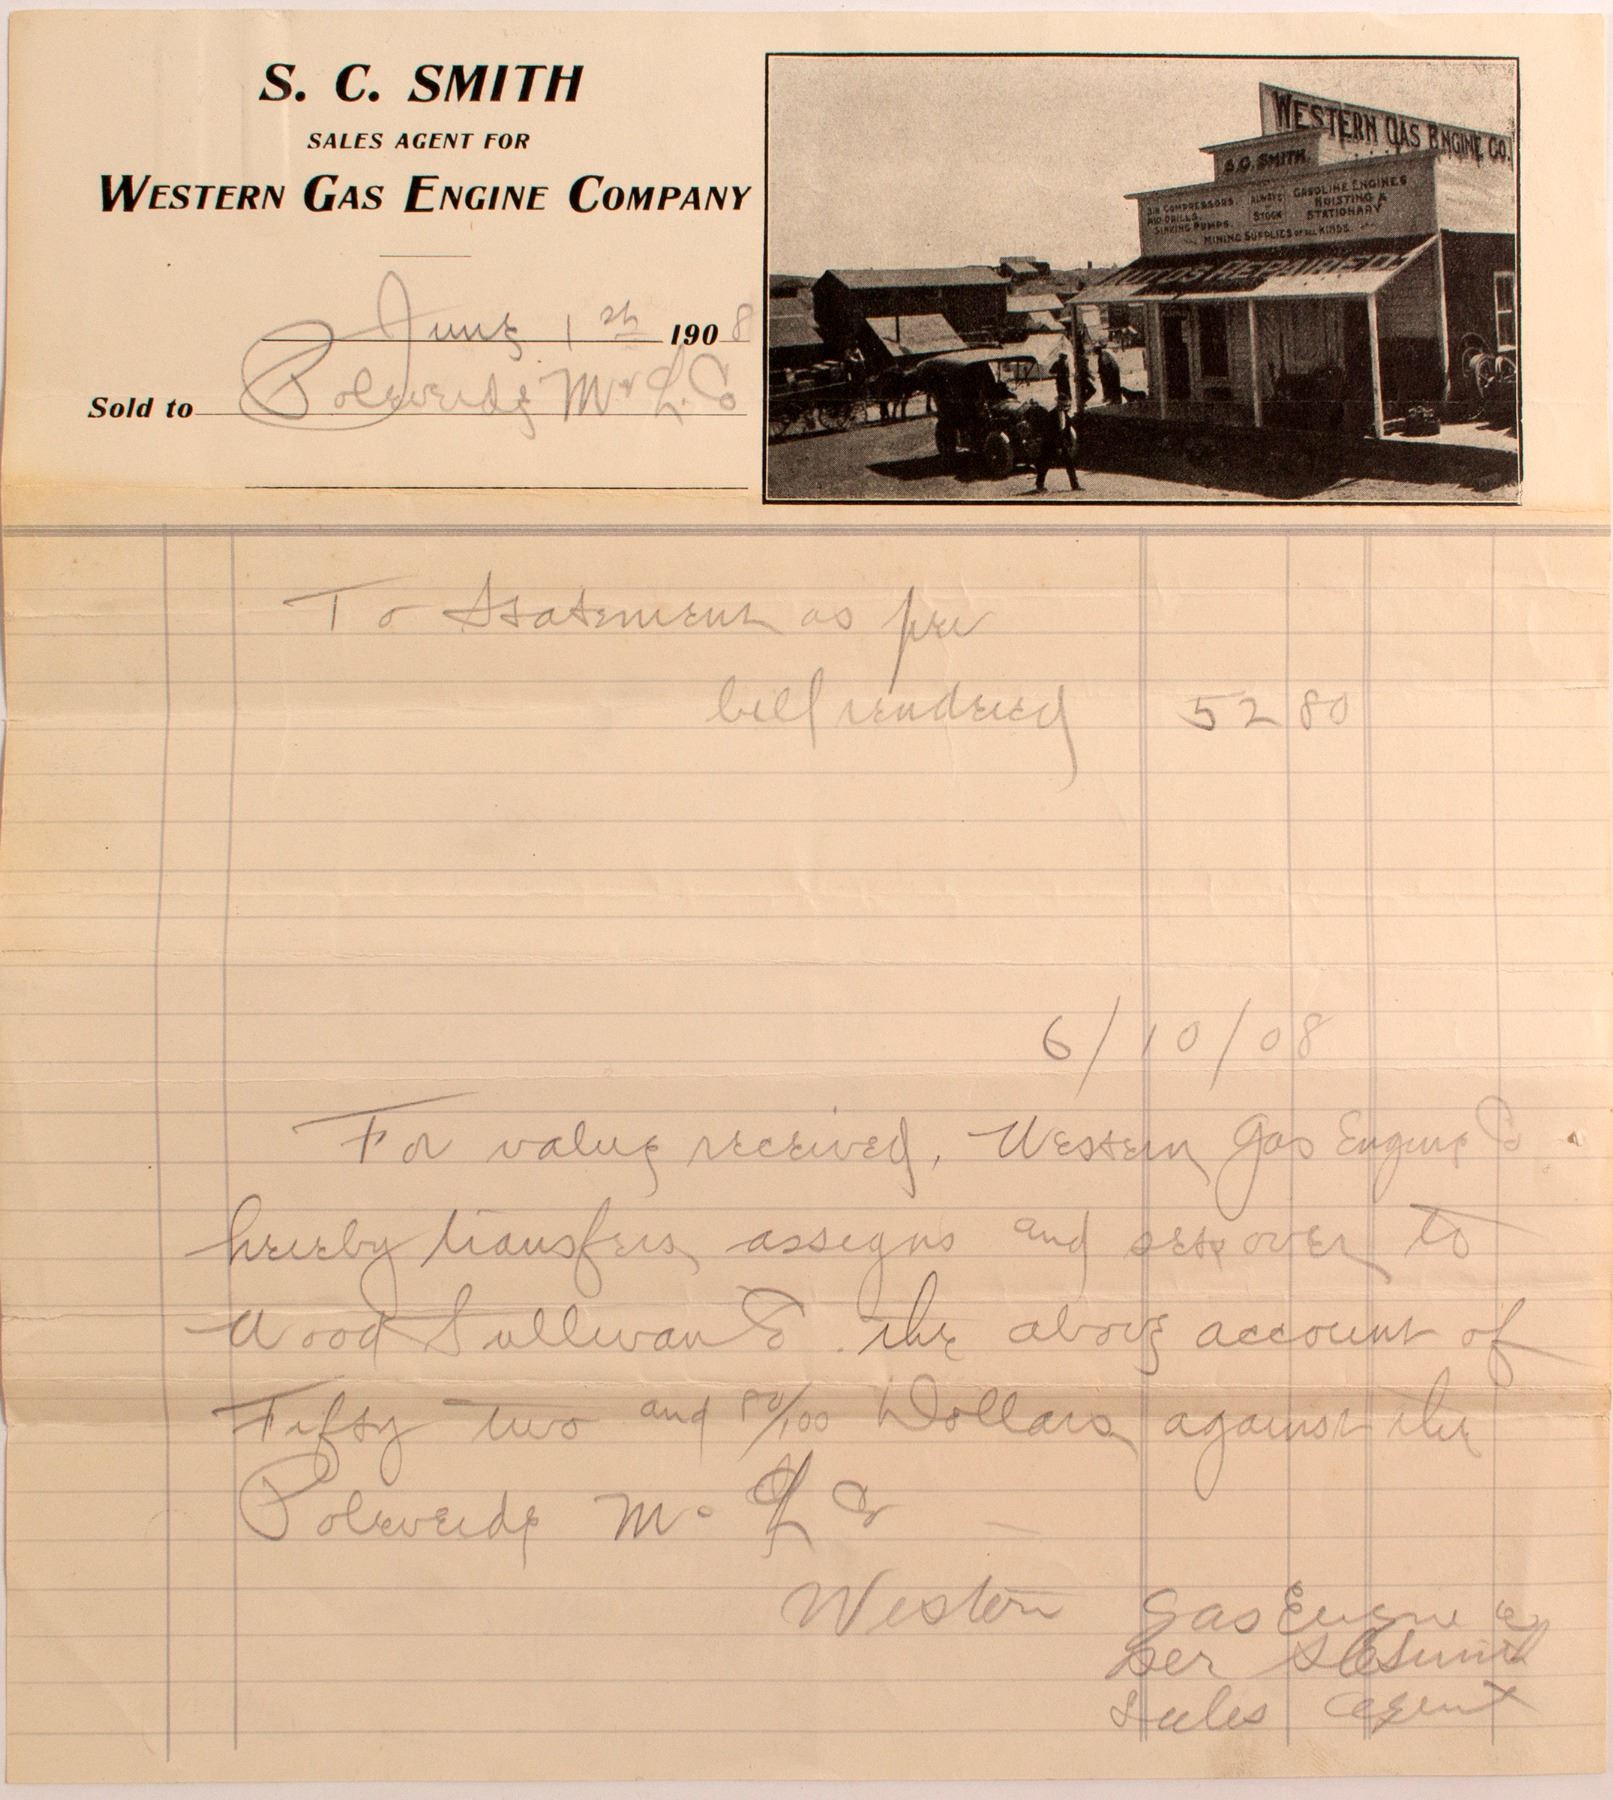 S. C. SMITH
SALES AGENT FOR
WESTERN GAS ENGINE COMPANY
June 1st 1908
Sold to Polverde M L. Co
WESTERN GAS ENGINE CO.
S.C. SMITH.
AIR COMPRESSORS. ALWAYS GASOLINE ENGINES
AND DRILLS. HOISTING &
SINKING PUMPS. STOCK STATIONARY
MINING SUPPLIES OF ALL KINDS.
AUTOS REPAIRED
To Statement as per
bill rendered 52 80
6/10/08
For value received, Western Gas Engine Co
hereby transfers, assigns and sets over to
Wood Sullivan Co. the above account of
Fifty two and 80/100 Dollars against the
M L Co
Western Gas Engine Co
per S C Smith
Sales Agent